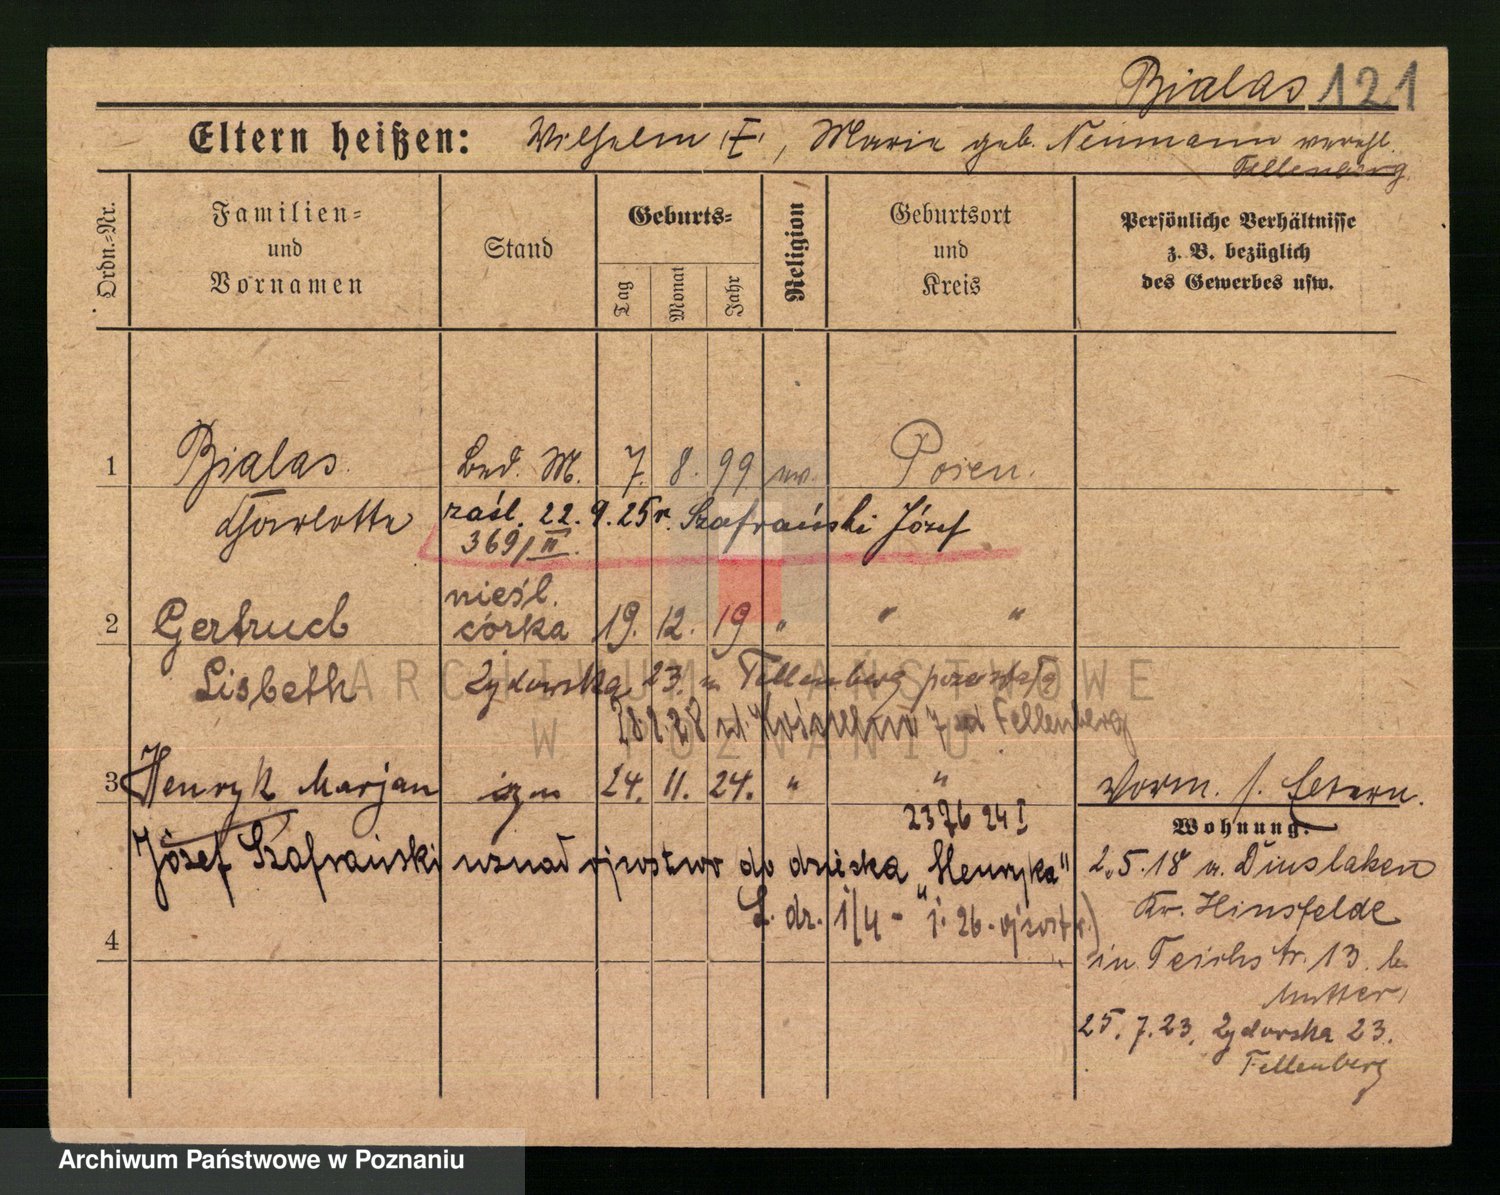 Bialas 121
Eltern heißen: Wilhelm (†), Marie geb. Neumann verehl.
Fellenberg
Ordn.-Nr.
Familien- und Vornamen
Stand
Geburts-
Tag Monat Jahr
Religion
Geburtsort und Kreis
Persönliche Verhältnisse z. B. bezüglich des Gewerbes usw.
1 Bialas Led. M. 7. 8. 99 ev. Posen.
Charlotte zaśl. 22.9.25 r. Szafrański Józef
369/II.
nieśl.
2 Gertrud córka 19. 12. 19 " " "
Lisbeth Żydowska 23. u Fellenberg pozostaje
28.2.28 Fellenberg
3 Henryk Marjan syn 24. 11. 24. " " Vorm. s. Eltern.
2376 24 I
Wohnung:
Józef Szafrański uznał ojcostwo do dziecka „Henryka"
2.5.18 n. Dinslaken
Kr. Hinsfelde
4
in Teichstr. 13. b.
Mutter,
25.7.23, Żydowska 23.
Fellenberg
ARCHIWUM PAŃSTWOWE
W POZNANIU
Archiwum Państwowe w Poznaniu